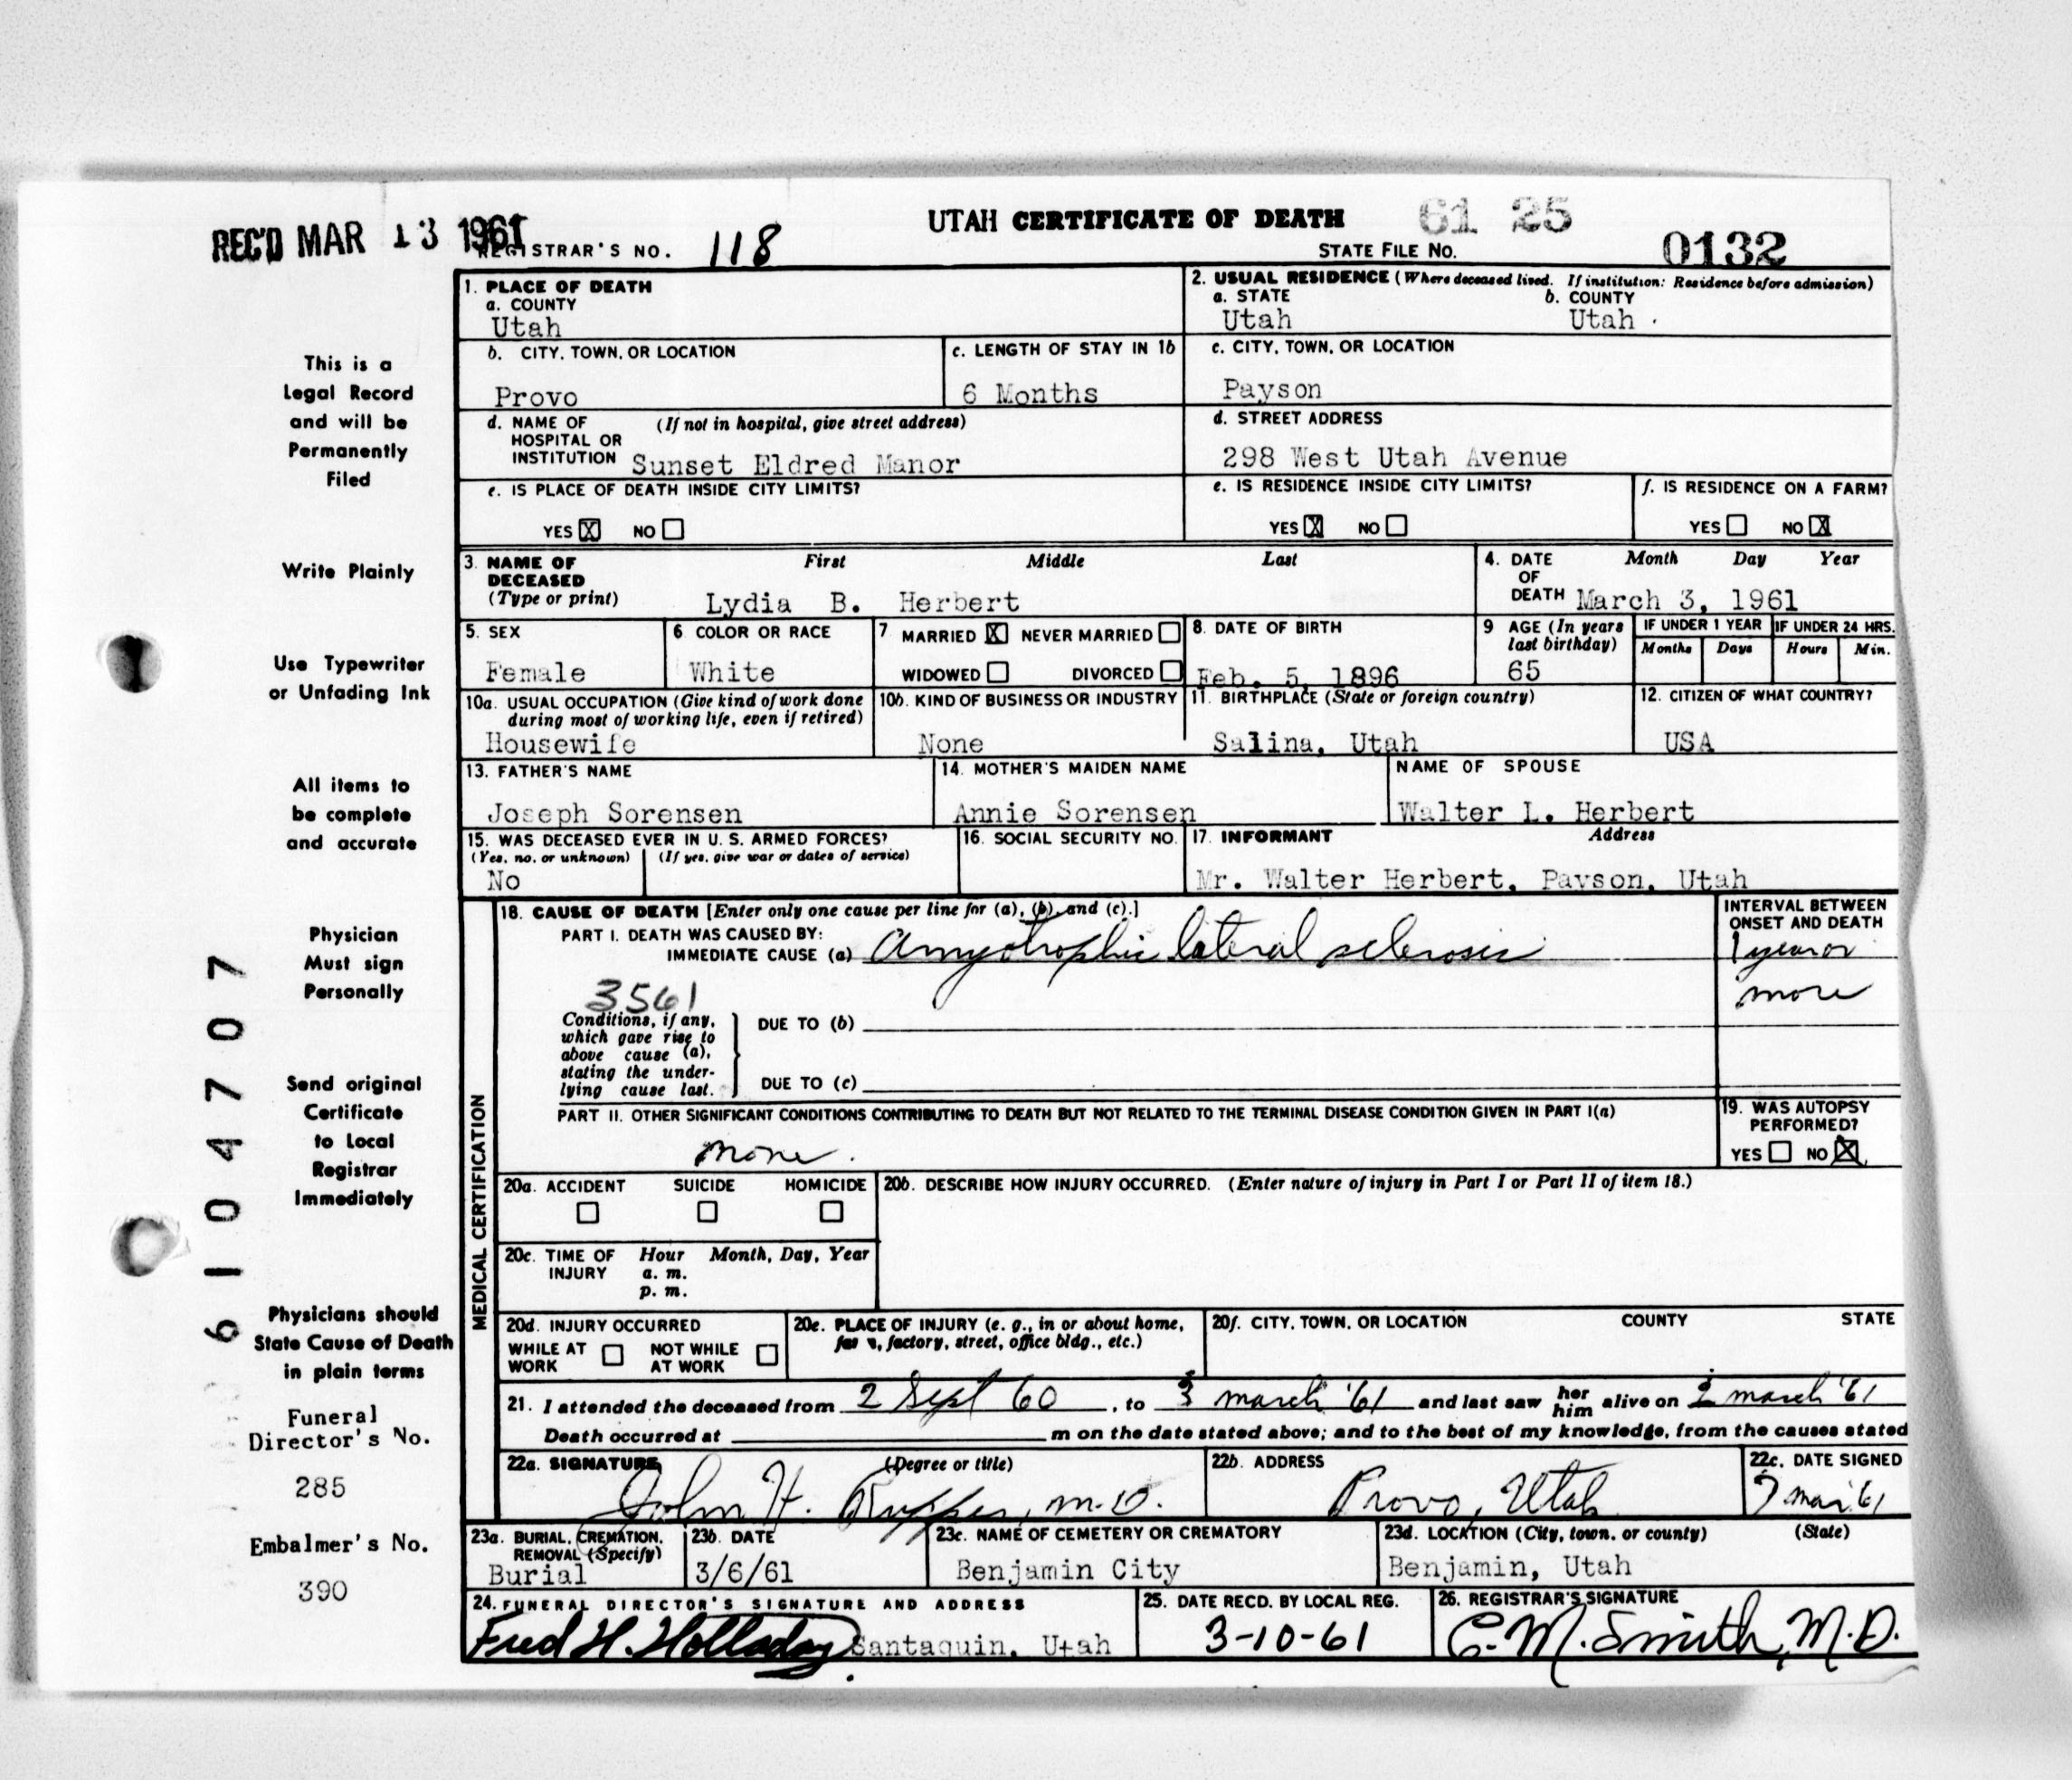 REC'D MAR 13 1961
UTAH CERTIFICATE OF DEATH 61 25
REGISTRAR'S NO. 118
STATE FILE No. 0132
1. PLACE OF DEATH
a. COUNTY
Utah
2. USUAL RESIDENCE (Where deceased lived. If institution: Residence before admission)
a. STATE b. COUNTY
Utah Utah
b. CITY, TOWN, OR LOCATION
Provo
c. LENGTH OF STAY IN 1b
6 Months
c. CITY, TOWN, OR LOCATION
Payson
d. NAME OF (If not in hospital, give street address)
HOSPITAL OR
INSTITUTION Sunset Eldred Manor
d. STREET ADDRESS
298 West Utah Avenue
e. IS PLACE OF DEATH INSIDE CITY LIMITS?
YES X NO
e. IS RESIDENCE INSIDE CITY LIMITS?
YES X NO
f. IS RESIDENCE ON A FARM?
YES NO X
3. NAME OF First Middle Last
DECEASED
(Type or print) Lydia B. Herbert
4. DATE Month Day Year
OF
DEATH March 3, 1961
5. SEX
Female
6 COLOR OR RACE
White
7 MARRIED X NEVER MARRIED
WIDOWED DIVORCED
8. DATE OF BIRTH
Feb. 5, 1896
9 AGE (In years
last birthday)
65
IF UNDER 1 YEAR IF UNDER 24 HRS.
Months Days Hours Min.
10a. USUAL OCCUPATION (Give kind of work done
during most of working life, even if retired)
Housewife
10b. KIND OF BUSINESS OR INDUSTRY
None
11. BIRTHPLACE (State or foreign country)
Salina, Utah
12. CITIZEN OF WHAT COUNTRY?
USA
13. FATHER'S NAME
Joseph Sorensen
14. MOTHER'S MAIDEN NAME
Annie Sorensen
NAME OF SPOUSE
Walter L. Herbert
15. WAS DECEASED EVER IN U. S. ARMED FORCES?
(Yes, no, or unknown) (If yes, give war or dates of service)
No
16. SOCIAL SECURITY NO.
17. INFORMANT Address
Mr. Walter Herbert, Payson, Utah
MEDICAL CERTIFICATION
18. CAUSE OF DEATH [Enter only one cause per line for (a), (b), and (c).]
PART I. DEATH WAS CAUSED BY:
IMMEDIATE CAUSE (a) Amyotrophic lateral sclerosis
3561
Conditions, if any,
which gave rise to
above cause (a),
stating the under-
lying cause last.
DUE TO (b)
DUE TO (c)
INTERVAL BETWEEN
ONSET AND DEATH
1 year or
more
PART II. OTHER SIGNIFICANT CONDITIONS CONTRIBUTING TO DEATH BUT NOT RELATED TO THE TERMINAL DISEASE CONDITION GIVEN IN PART I(a)
none.
19. WAS AUTOPSY
PERFORMED?
YES NO X
20a. ACCIDENT SUICIDE HOMICIDE
20b. DESCRIBE HOW INJURY OCCURRED. (Enter nature of injury in Part I or Part II of item 18.)
20c. TIME OF Hour Month, Day, Year
INJURY a. m.
p. m.
20d. INJURY OCCURRED
WHILE AT NOT WHILE
WORK AT WORK
20e. PLACE OF INJURY (e. g., in or about home,
farm, factory, street, office bldg., etc.)
20f. CITY, TOWN, OR LOCATION COUNTY STATE
21. I attended the deceased from 2 Sept 60, to 3 march '61 and last saw her him alive on 2 march '61
Death occurred at m on the date stated above; and to the best of my knowledge, from the causes stated
22a. SIGNATURE (Degree or title)
John H. Rupper, M.D.
22b. ADDRESS
Provo, Utah
22c. DATE SIGNED
7 mar 61
23a. BURIAL, CREMATION,
REMOVAL (Specify)
Burial
23b. DATE
3/6/61
23c. NAME OF CEMETERY OR CREMATORY
Benjamin City
23d. LOCATION (City, town, or county) (State)
Benjamin, Utah
24. FUNERAL DIRECTOR'S SIGNATURE AND ADDRESS
Fred H. Holladay Santaquin, Utah
25. DATE RECD. BY LOCAL REG.
3-10-61
26. REGISTRAR'S SIGNATURE
C. M. Smith, M.D.
This is a
Legal Record
and will be
Permanently
Filed
Write Plainly
Use Typewriter
or Unfading Ink
All items to
be complete
and accurate
Physician
Must sign
Personally
Send original
Certificate
to Local
Registrar
Immediately
Physicians should
State Cause of Death
in plain terms
Funeral
Director's No.
285
Embalmer's No.
390
6104707